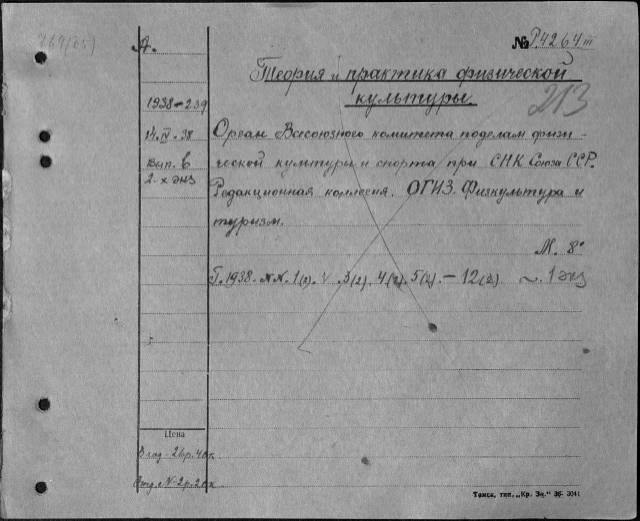 769(05)
А.
№ Р.4264 III
Теория и практика физической
культуры.
213
1938-239
14. IV - 38
Вып. в
2-х экз
Орган Всесоюзного комитета поделам физи-
ческой культуры и спорта при СНК Союза ССР.
Редакционная коллегия. ОГИЗ. Физкультура и
туризм.
М. 8°
Г. 1938. №№. 1(2). 3(2). 4(2). 5(2). - 12(2). 1 экз
Цена
В год - 26р. 40к
Отд. № - 2р. 20к
Томск, тип. „Кр. Зн." 36- 3041